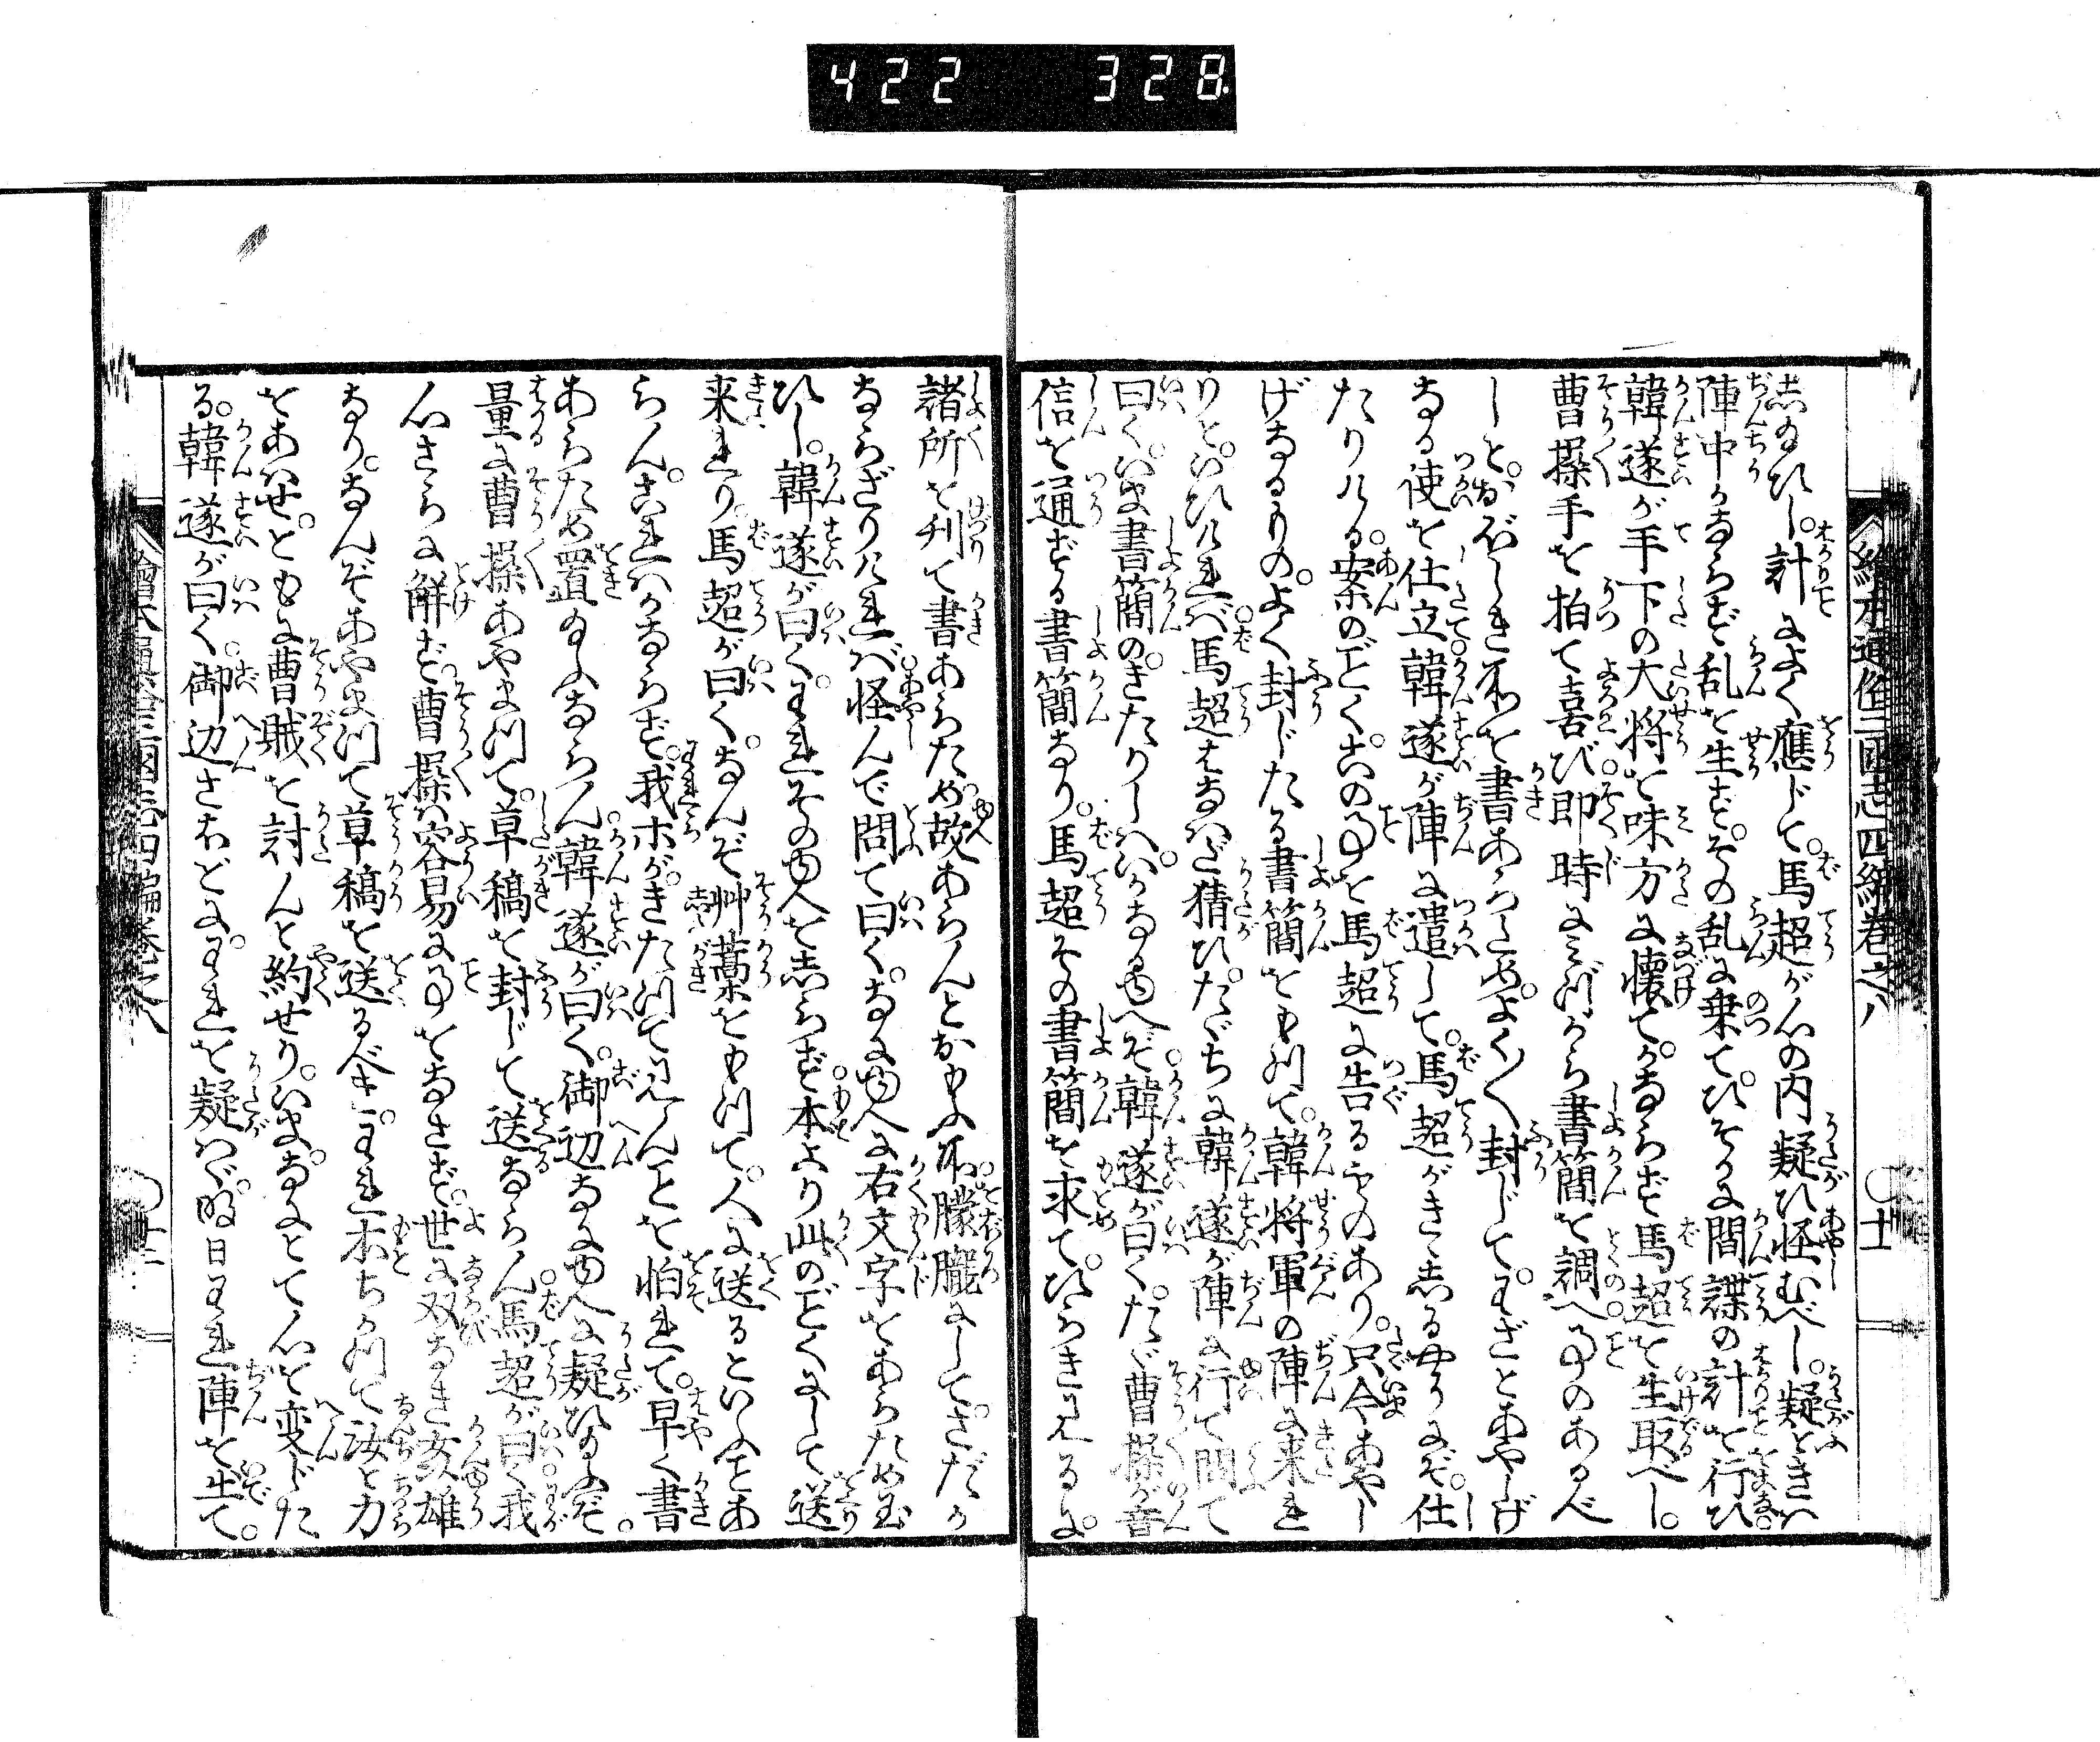 422 328
繪本通俗三國志四編巻之八 〇十一
志給ひし。計によく應じて。馬超が心の内疑ひ怪むべし。疑ときハ
陣中かならず乱を生ず。その乱に乗て。ひそかに間諜の計を行ひ
韓遂が手下の大将を味方に懐て。かならず馬超を生取べし。
曹操手を拍て喜び。即時にミづから書簡を調へ。事のあるべ
しと。おぼしき所を書あらため。よく〳〵封じて。わざとあやしげ
なる使を仕立。韓遂が陣に遣して。馬超がきゝ志るやうにぞ。仕
たりける。案のごとく。この事を馬超に告るものあり。只今あやし
げなるもの。よく封じたる書簡をもつて。韓将軍の陣に来れ
りと。いひければ。馬超はなハだ猜ひ。たゞちに韓遂が陣に行て問て
曰く。いま書簡のきたりしハ。いかなるゆへぞ。韓遂が曰く。たゞ曹操が音
信を通ずる書簡なり。馬超その書簡を求て。ひらき見るに。
諸所を刊て書あらため。故あらんとおもふ所。朦朧にしてさだか
ならざりければ。怪んで問て曰く。なに物へに右文字をあらため玉
ひし。韓遂が曰く。われそのゆへを志らず。本より此のごとくにして送
来れり。馬超が曰く。なんぞ艸藁をもつて。人に送るといふことあ
らん。これハかならず。我ホがきたつて見んことを怕れて。早く書
あらため置給ふならん。韓遂が曰く。御辺なにゆへに疑ひ給ふぞ。
量に曹操あやまつて。草稿を封じて送るならん。馬超が曰く。我
心さらに解ず。曹操ハ容易に事をなさず。世に双なき奸雄
なり。なんぞあやまつて草稿を送るべき。われ本ちかつて汝と力
をあハせ。ともに曹賊を討んと約せり。いま。なにとて心を変じた
る。韓遂が曰く。御辺さほどに。われを疑ハゞ。明日われ陣を出て。
繪本通俗三國志四編巻之八